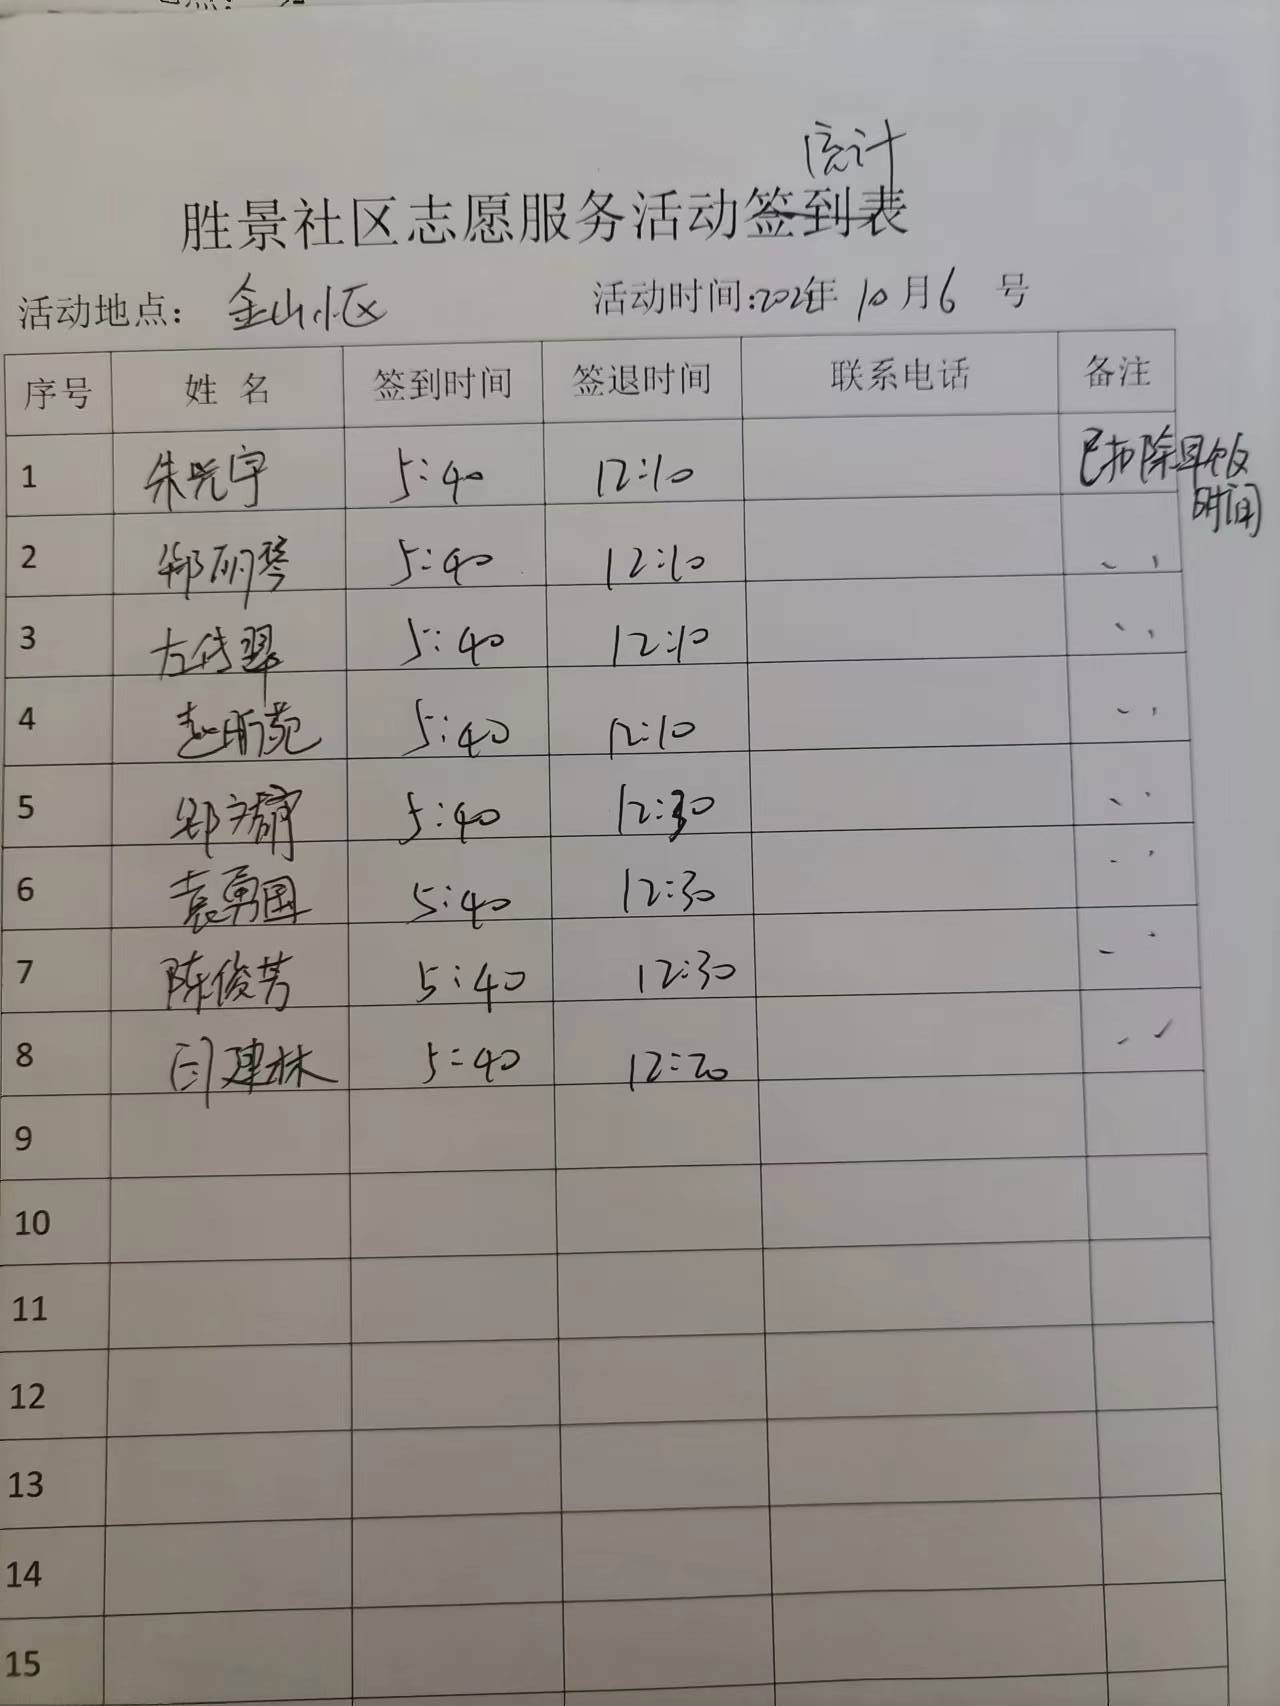 统计
胜景社区志愿服务活动签到表
活动地点: 金山小区 活动时间: 年 10月6 号
序号 姓 名 签到时间 签退时间 联系电话 备注
1 朱光宇 5:40 12:10 已扣除早饭
时间
2 5:40 12:10
3 左传翠 5:40 12:10
4 5:40 12:10
5 5:40 12:30
6 袁勇国 5:40 12:30
7 陈俊芳 5:40 12:30
8 闫建林 5:40 12:20
9
10
11
12
13
14
15